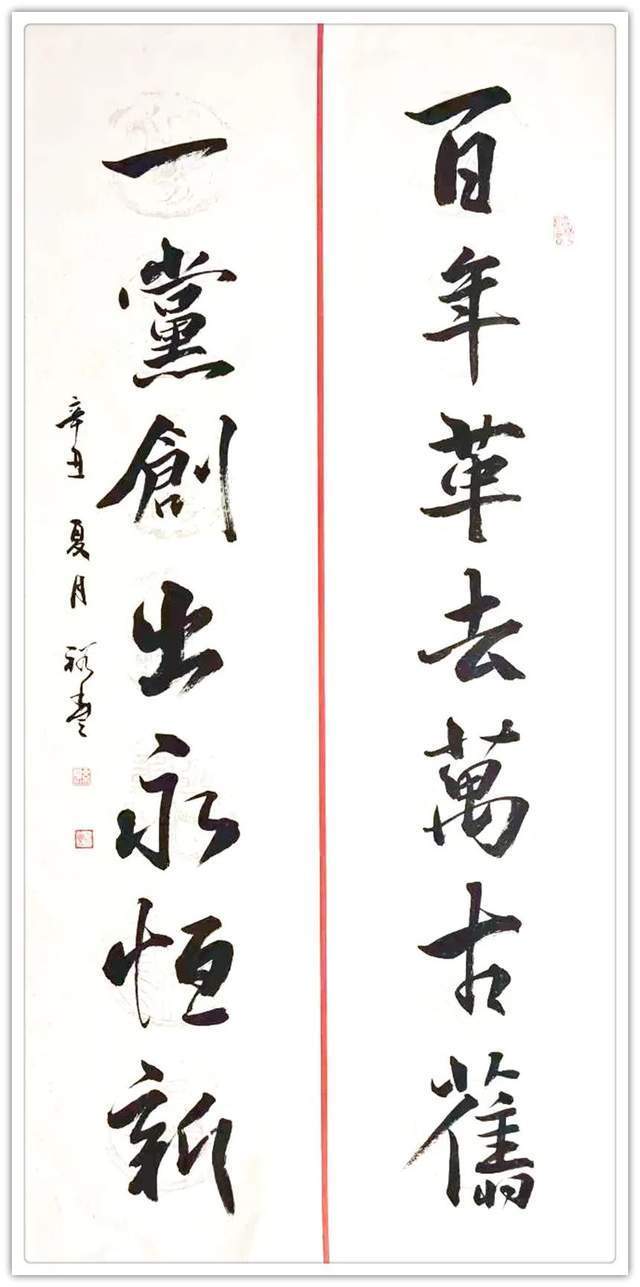 百年革去萬古舊
一黨創出永恒新
辛丑 夏月